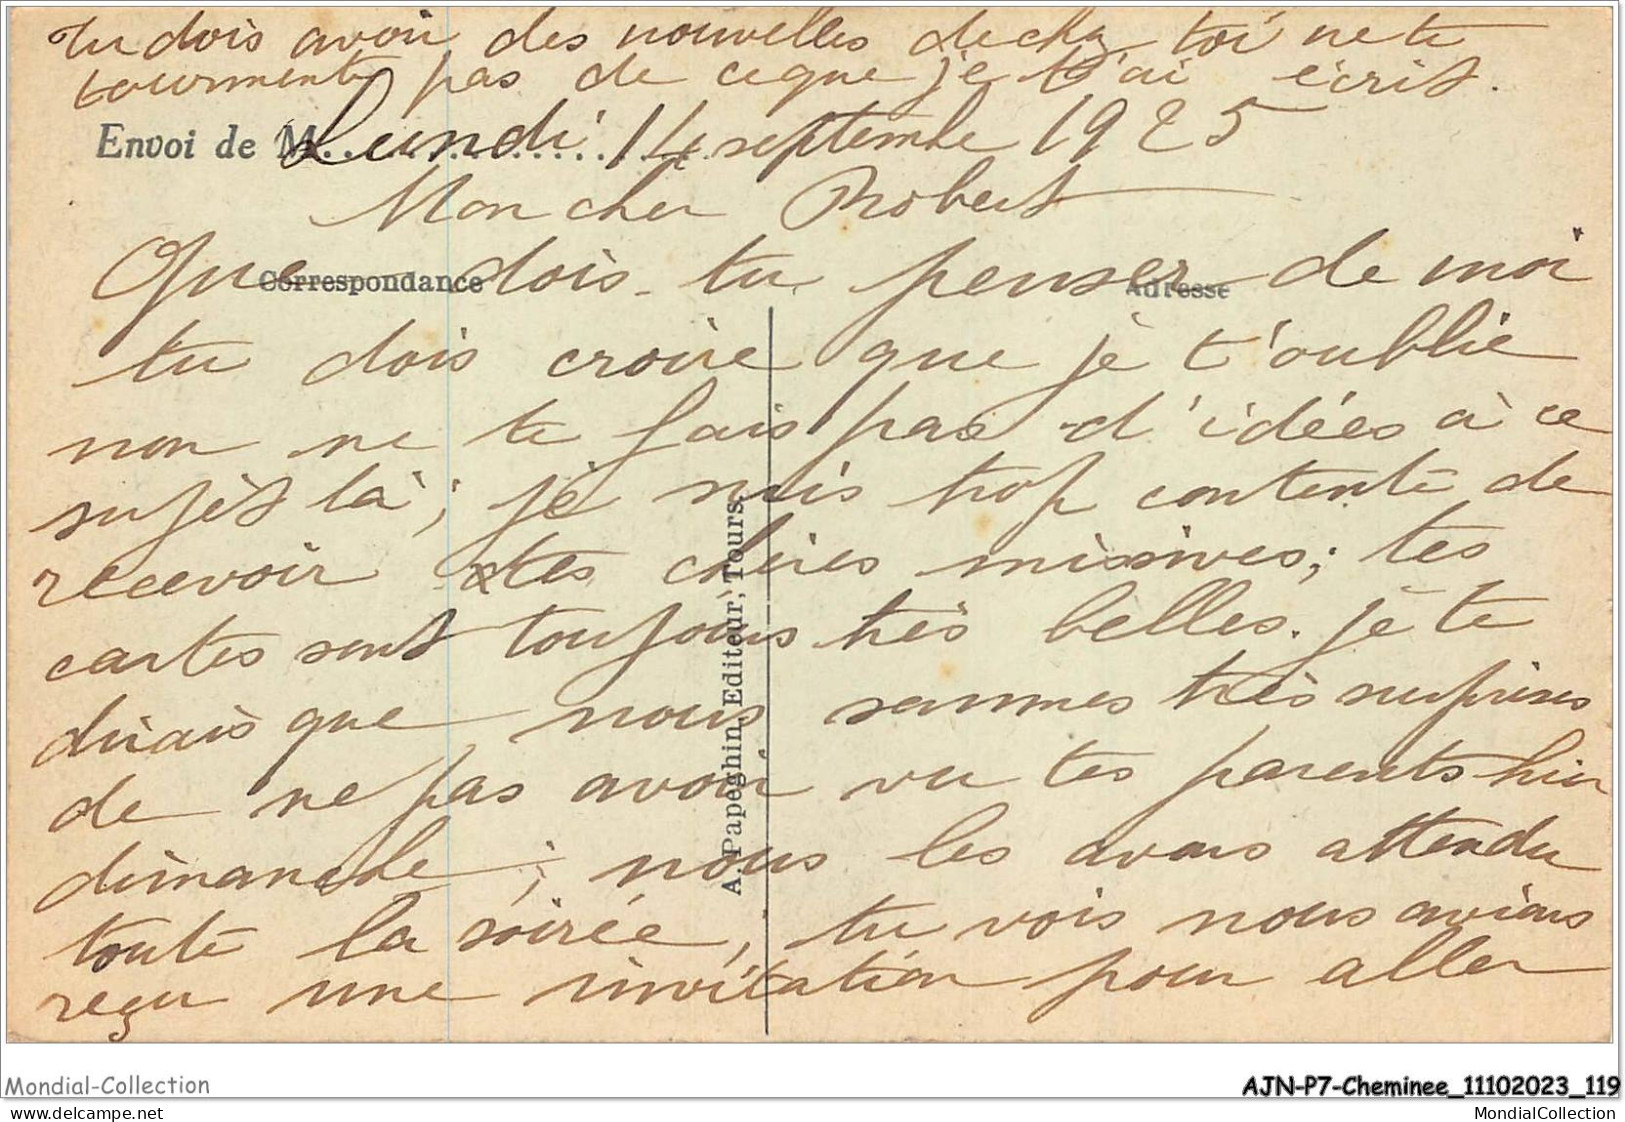 tu dois avoir des nouvelles de chez toi ne te
tourmente pas de ce que je t'ai écrit.
Envoi de M.....................
Lundi 14 septembre 1925
Mon cher Robert
Correspondance
Adresse
Que dois-tu penser de moi
tu dois croire que je t'oublie
non ne te fais pas d'idées à ce
sujèt là ; je suis trop contente de
recevoir tes chères missives ; tes
cartes sont toujours très belles. je te
dirais que nous sommes très surprises
de ne pas avoir vu tes parents hier
dimanche ; nous les avons attendu
toute la soirée ; tu vois nous avions
reçu une invitation pour aller
A. Papeghin, Editeur, Tours.
Mondial-Collection
AJN-P7-Cheminee_11102023_119
delcampe.net
MondialCollection